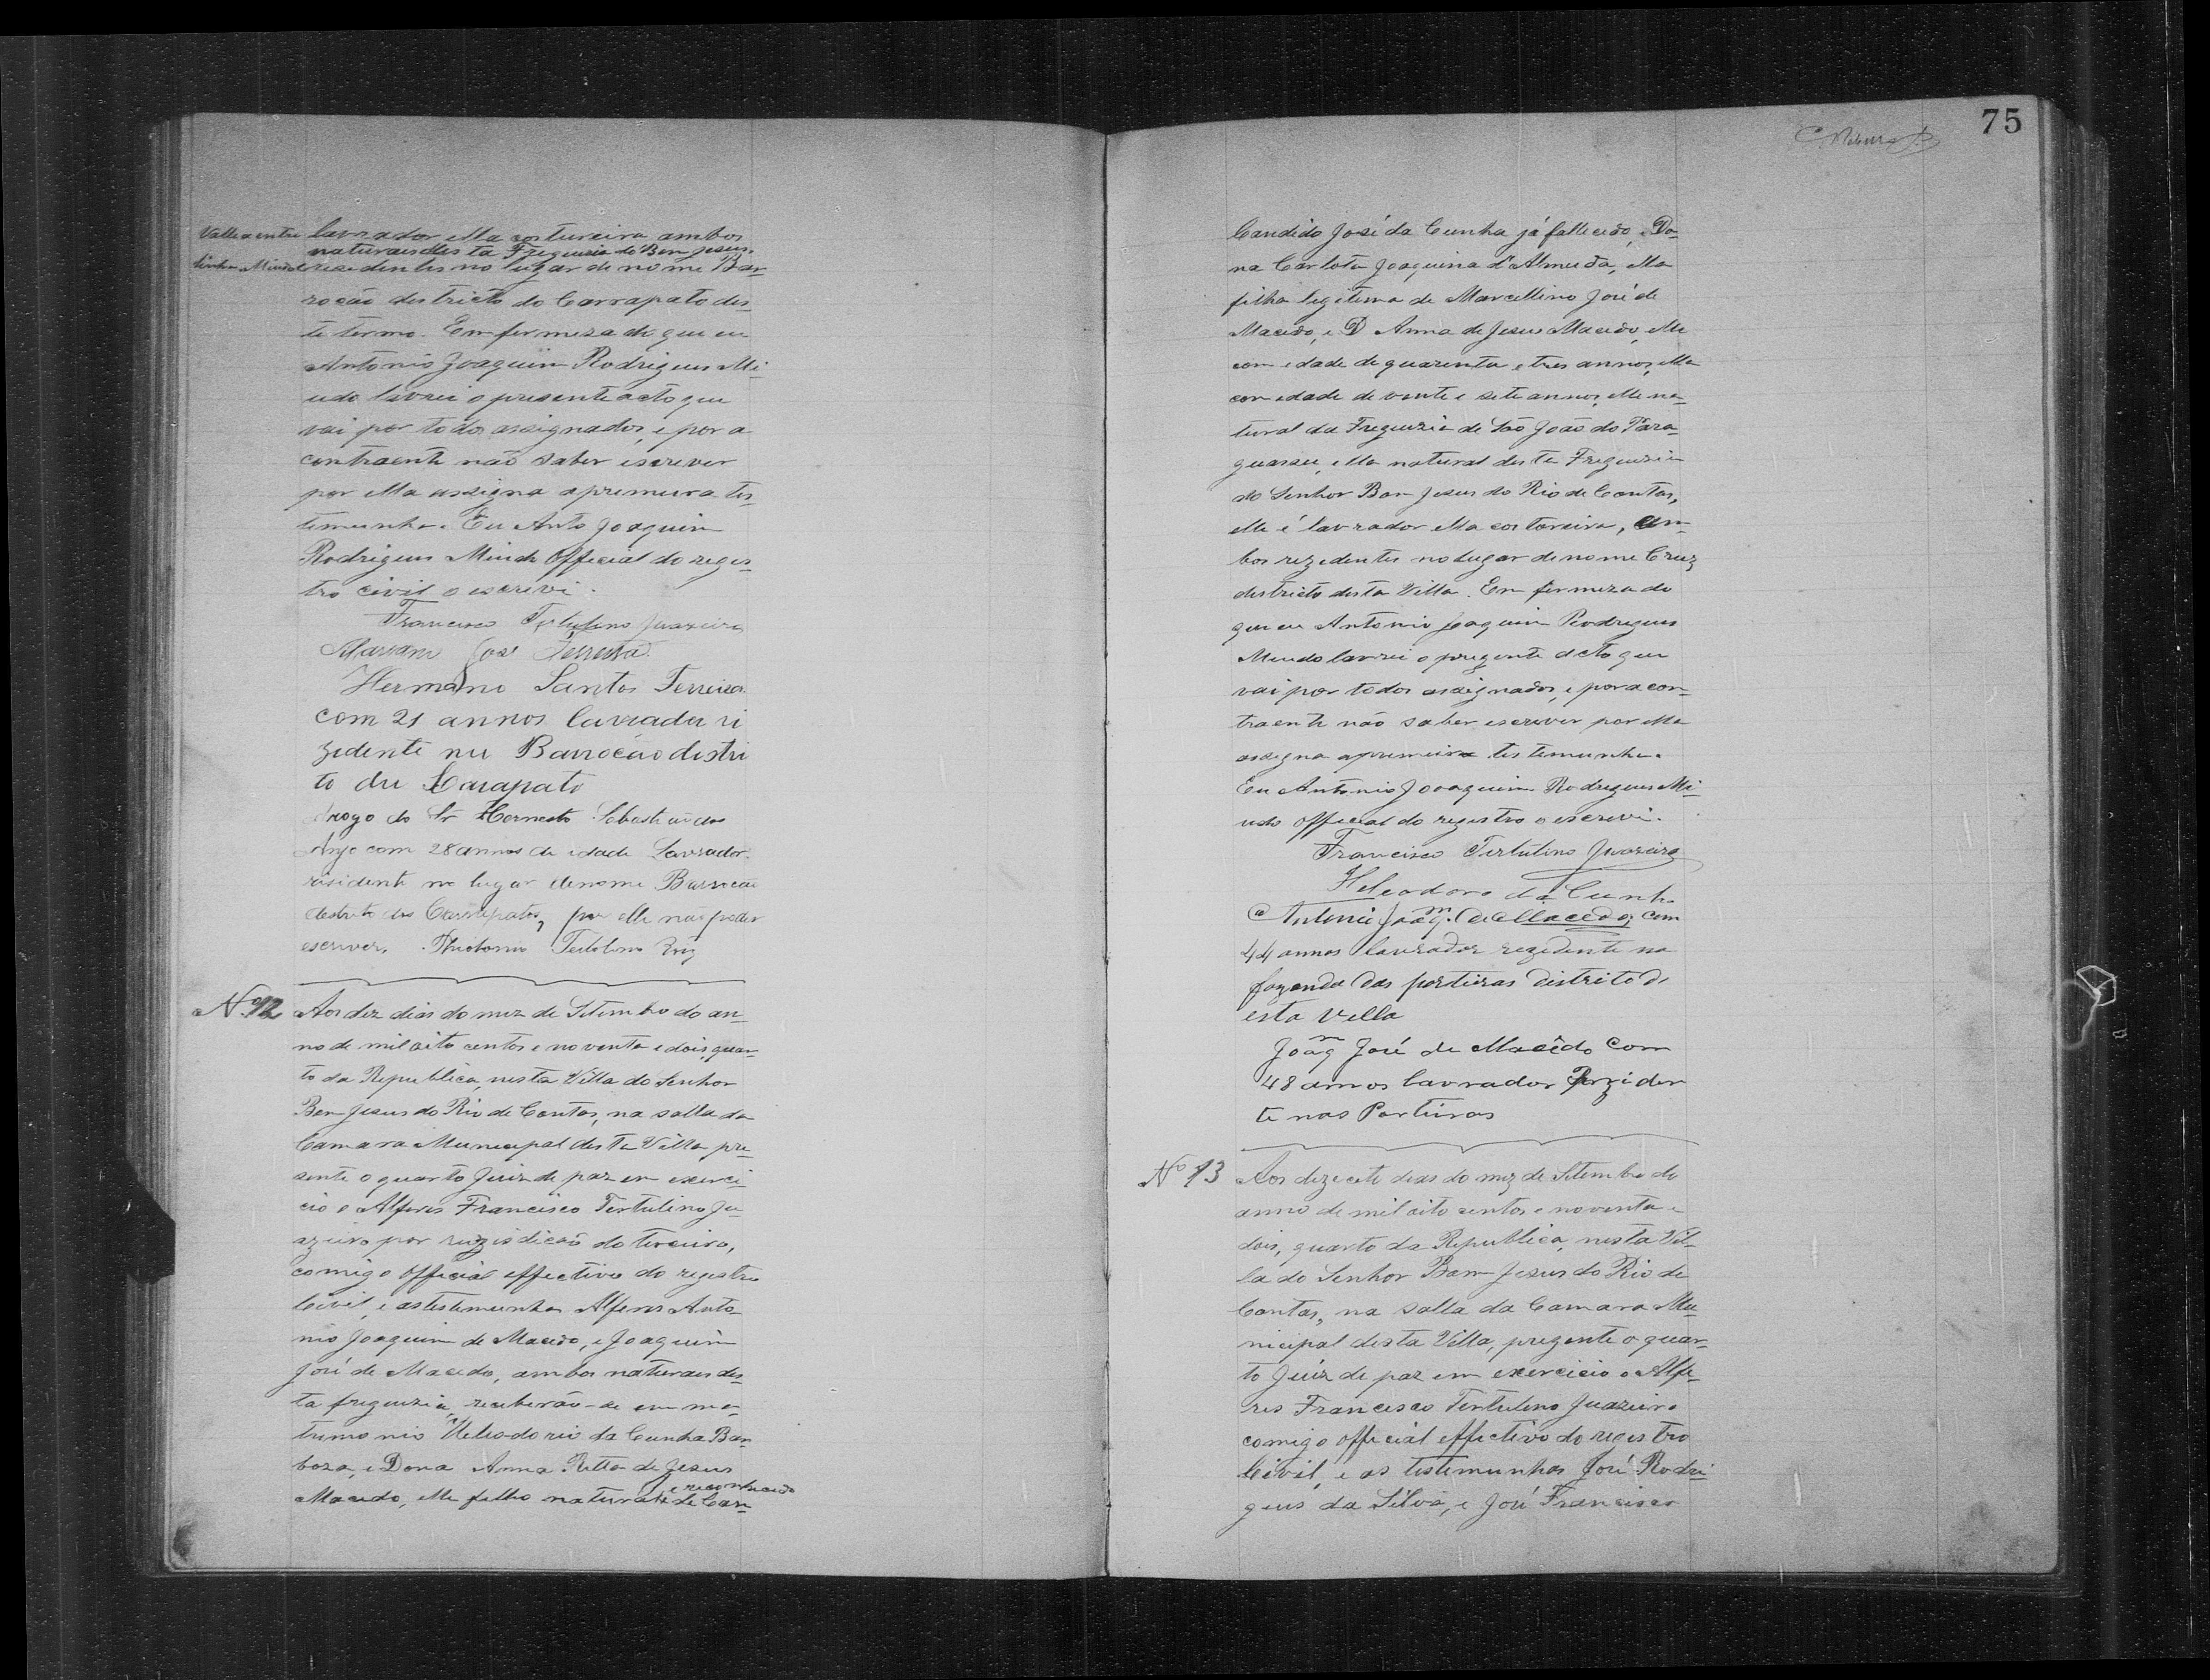 Valle a entre lavrador ella costureira ambos
naturaes desta Freguesia do Bom Jesus.
linha Miudo residentes no lugar de nome Bar
rocão districto do Carrapato des
te termo. Em fermeza de que eu
Antonio Joaquim Rodrigues Mi
udo lavrei o presente acto que
vai por todos assignados, e por a
contraente não saber escrever
por ella assigna a premeira tes
temunha. Eu Anto Joaquim
Rodrigues Miudo Official do reges
tro civil o escrevi.
Francisco Tertulino Juazeiro
Mariano José Ferreira
Hermano Santos Ferreira
com 21 annos lavrador ri
zedente nu Barrocão distri
to du Carapato
Arogo do Sr Hernesto Sebastião dos
Anjo com 28 annos de idade Lavrador
risidente no lugar denome Barrocão
destrito do Carrapatos, por elle não poder
escrever.
Nº 12 Aos dez dias do mez de Setembro do an
no de mil oito centos e noventa e dois, quar
to da Republica, nesta Villa do Senhor
Bom Jesus do Rio de Contas, na salla da
Camara Municipal desta Villa pre
sente o quarto Juiz de paz em exerci
cio o Alferes Francisco Tertulino Ju
azeiro por rugisdicão do terceiro,
comigo official effectivo do registro
Civil, e as testemunhas Alferes Anto
nio Joaquim de Macedo, e Joaquim
José de Macedo, ambos naturaes des
ta freguezia, receberão-se em ma
tremonio Heleodorio da Cunha Bar
boza, e Dona Anna Ritta de Jesus
Macedo, elle filho natural e reconhecido de Can
75
Candido José da Cunha já fallecido, e Do
na Carlota Joaquina d'Almeida, ella
filha legitema de Marcellino José de
Macedo, e D Anna de Jesus Macedo, elle
com edade de quarenta e tres annos, ella
com edade de vente e sete annos, elle na
tural da Freguezia de São João do Para
guassu, ella natural desta Freguezia
do Senhor Bom Jesus do Rio de Contas,
elle é lavrador ella costoreira, am
bos rezedentes no lugar de nome Cruz
destricto desta Villa. Em fermeza do
que eu Antonio Joaquim Rodrigues
Miudo lavrei o prezente acto que
vai por todos assignados, e por a con
traente não saber escrever por ella
assegna a premeira testemunha.
Eu Antonio Joaquim Rodrigues Mi
udo official do registro o escrevi.
Francisco Tertulino Juazeiro
Heleodoro da Cunha
Antonio Joaqm. de Macedo, com
44 annos lavrador rezedente na
fazenda das porteiras distrito d
esta vella
Joaqm José de Macêdo com
48 annos lavrador Reziden
te nas Porteiras
Nº 13 Aos dezecete dias do mez de Setembro do
anno de mil oito centos e noventa e
dois, quarto da Republica, nesta Vil
la do Senhor Bom Jesus do Rio de
Contas, na salla da Camara Mu
nicipal desta Villa, prezente o quar
to Juiz de paz em exercicio o Alfe
res Francisco Tertulino Juazeiro
comigo official effectivo do registro
Civil, e as testemunhas José Rodri
gues da Silva, e José Francisco